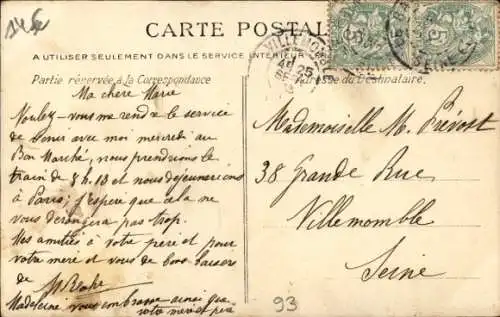 146
CARTE POSTALE
A UTILISER SEULEMENT DANS LE SERVICE INTÉRIEUR
Partie réservée à la Correspondance
Adresse du Destinataire.
Ma chère Marie
Voulez-vous me rendre le service
de venir avec moi mercredi au
Bon Marché, nous prendrions le
train de 8 h. 13 et nous déjeunerions
à Paris; j'espère que cela ne
vous dérangera pas trop.
Mes amitiés à votre père et pour
votre mère et vous de bons baisers
de
Madeleine vous embrasse ainsi que
votre mère et père
Mademoiselle M. Prévost
38 Grande Rue
Villemomble
Seine
VILLEMOMBLE
25
5
5
SEINE
93